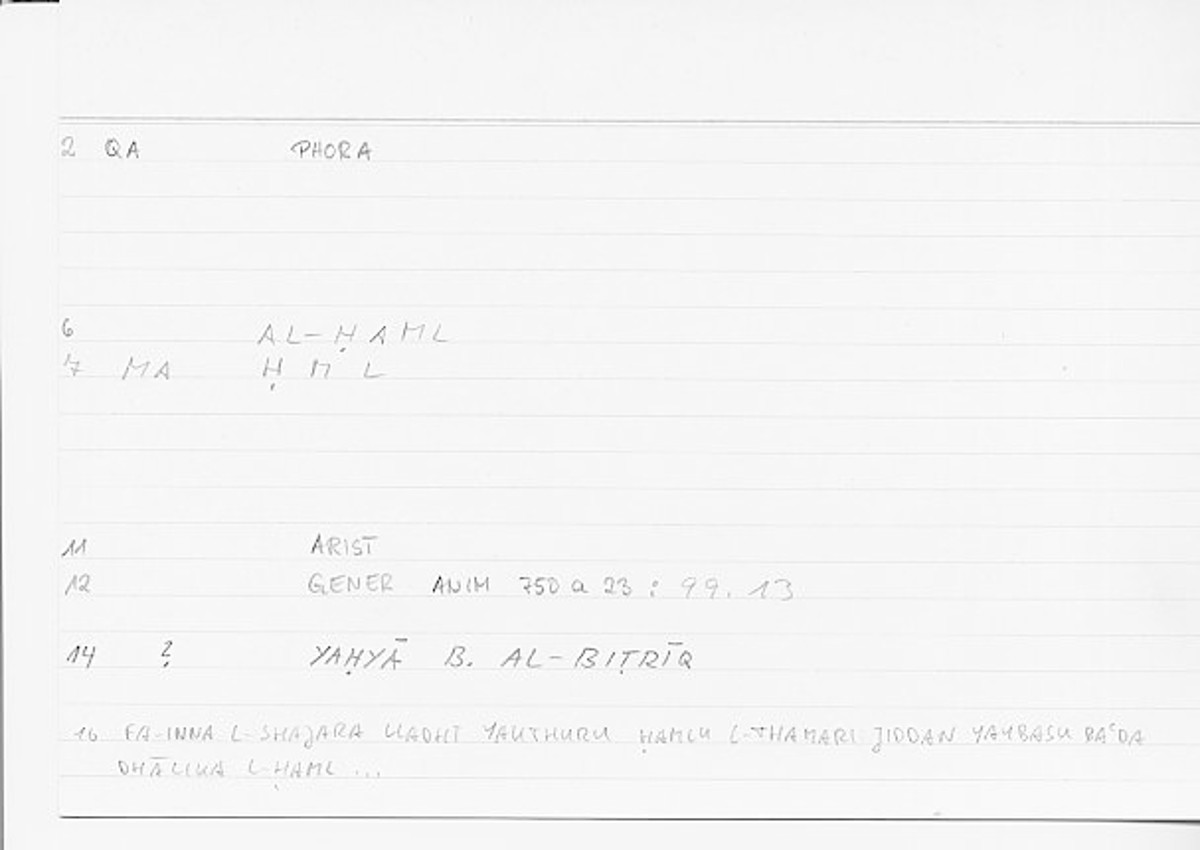 2 QA PHORA
6 AL-ḤAML
7 MA Ḥ M L
11 ARIST
12 GENER ANIM 750 a 23 : 99. 13
14 ? YAḤYĀ B. AL-BIṬRĪQ
16 FA-INNA L-SHAJARA LLADHĪ YAKTHURU ḤAMLU L-THAMARI JIDDAN YAYBASU BAʿDA
DHĀLIKA L-ḤAML ...